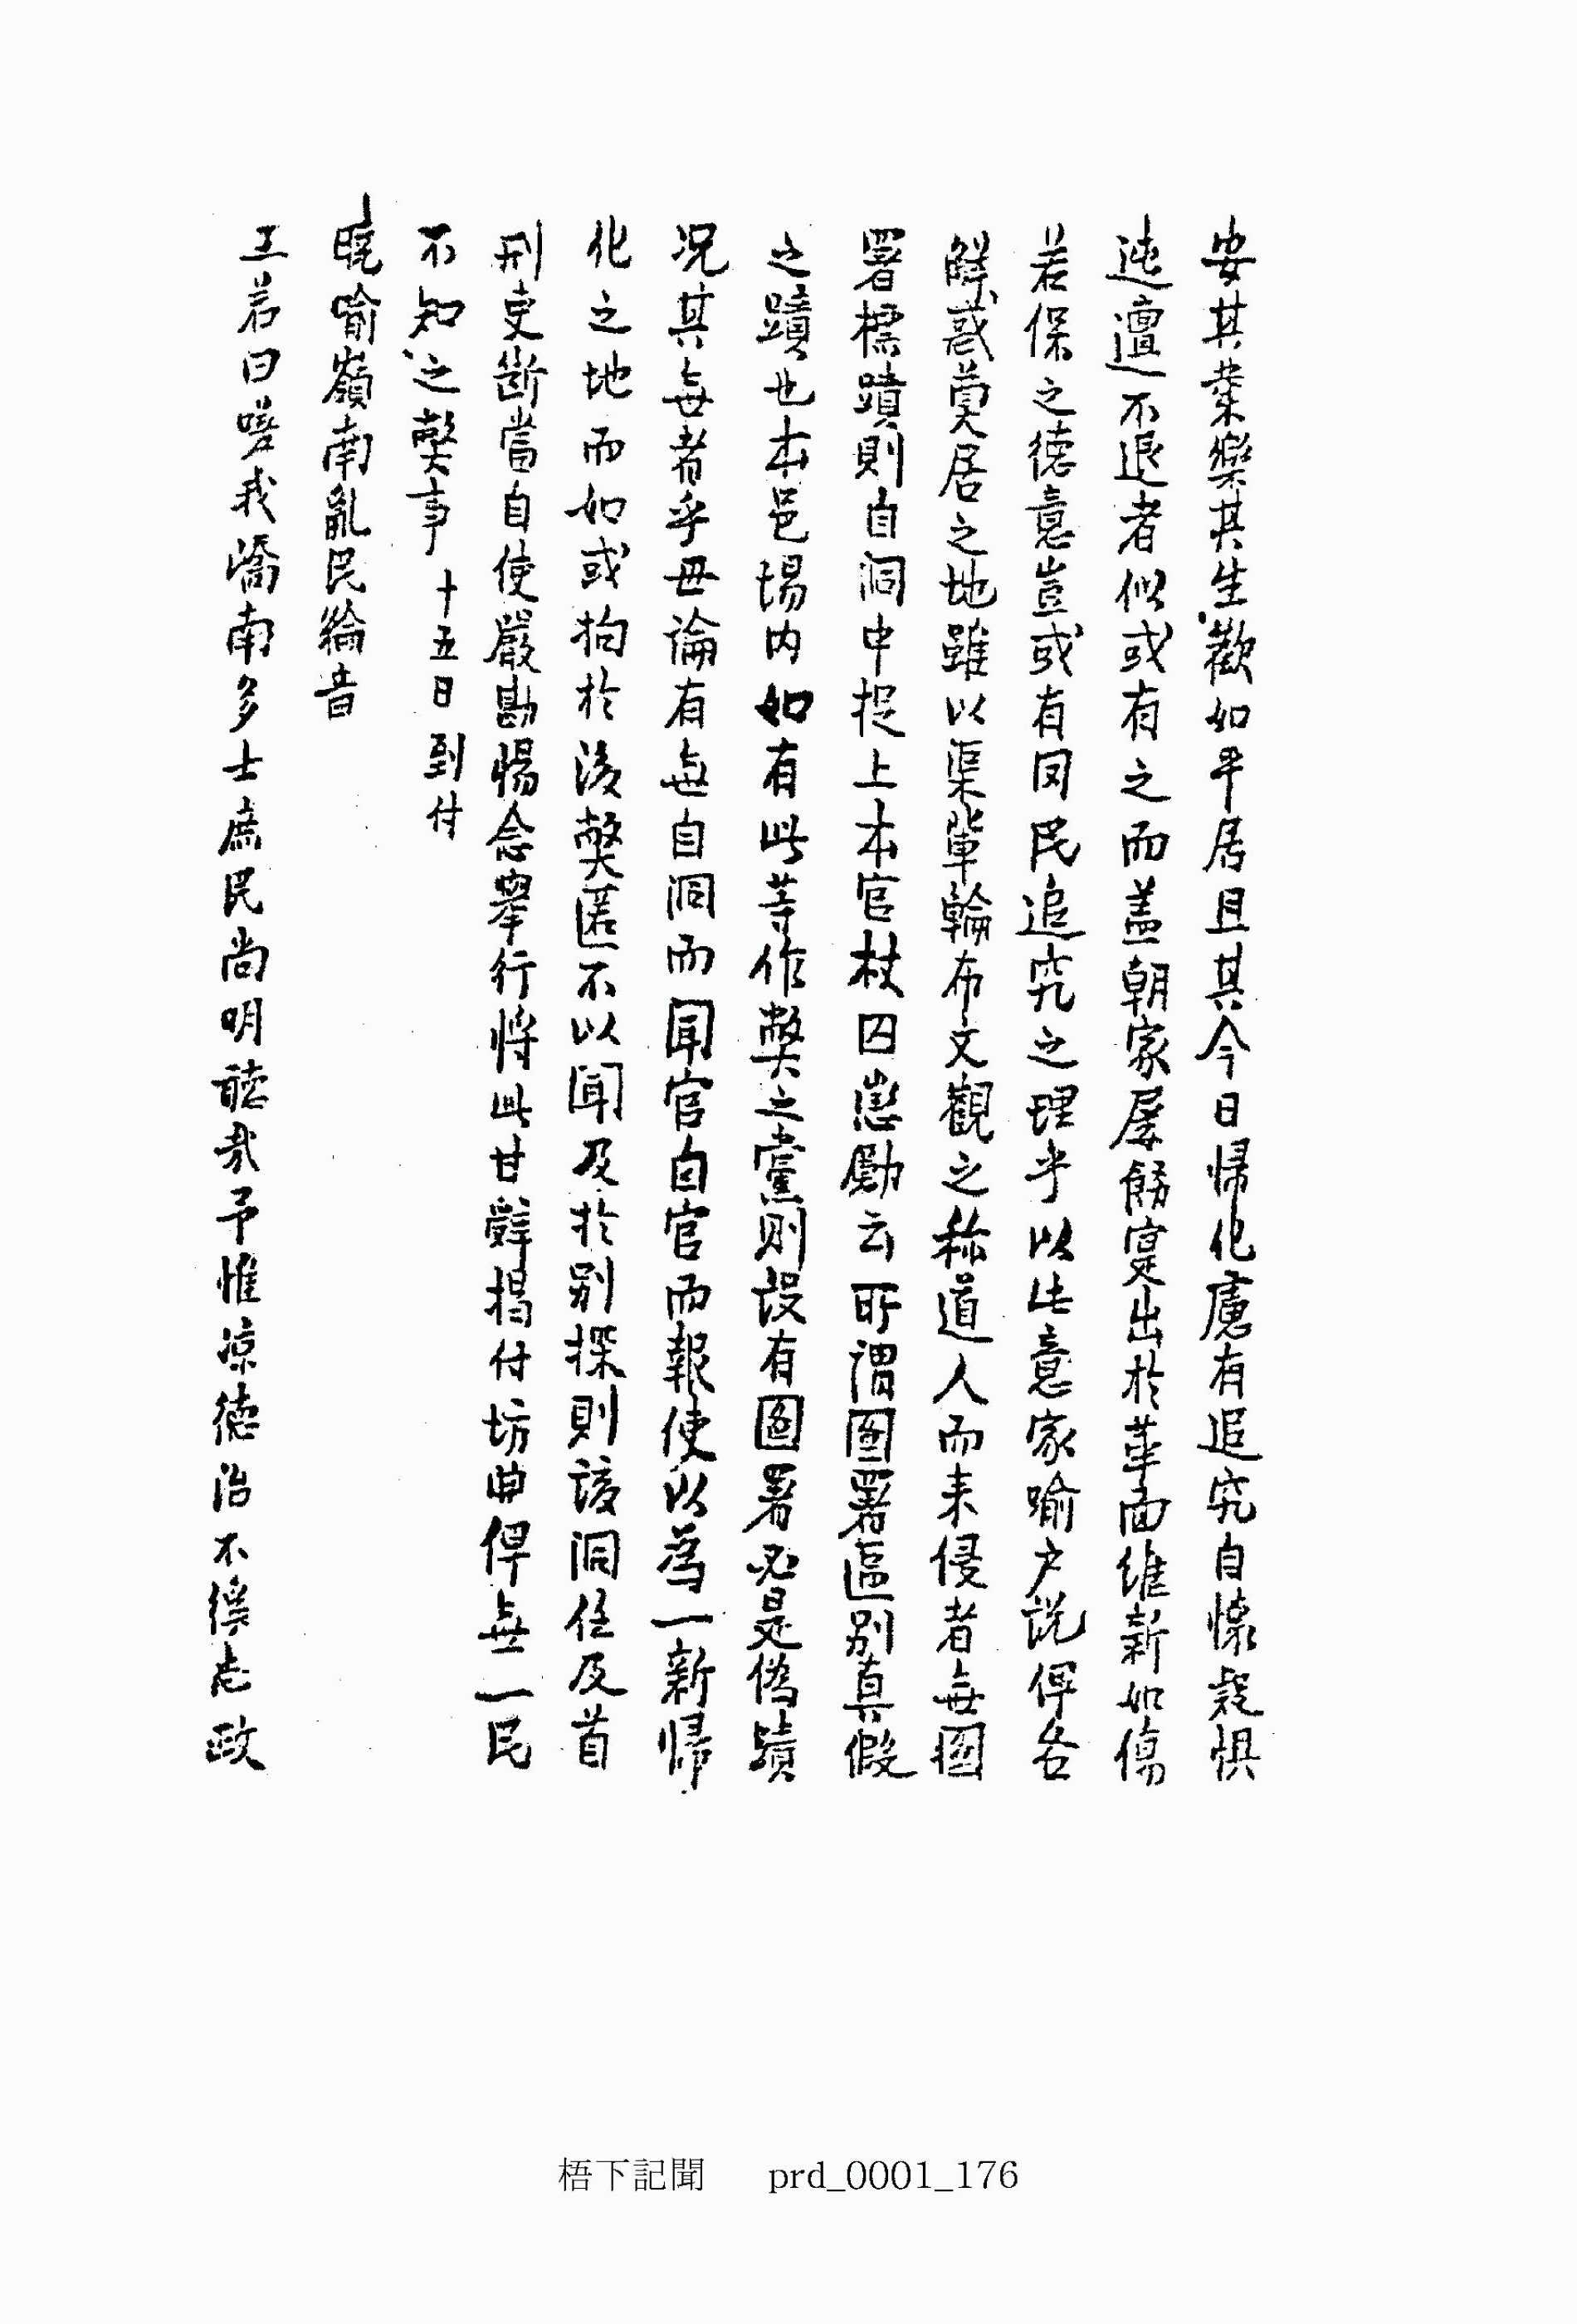 安其業樂其生歡如平居且其今日歸化慮有追究自懷疑惧
迍邅不退者似或有之而盖朝家屡飭寔出於革面維新如傷
若保之德意豈或有罔民追究之理乎以此意家喻户說俾各
解惑奠居之地雖以渠輩輪布文觀之称道人而来侵者無圖
署標蹟則自洞中捉上本官杖囚懲勵云所謂圖署區別真假
之蹟也本邑場内如有此等作弊之黨則設有圖署必是僞蹟
况其無者乎毋論有無自洞而聞官自官而報使以為一新歸
化之地而如或拘於後弊匿不以聞及於別探則該洞任及首
刑吏断當自使嚴勘惕念舉行將此甘辭揭付坊曲俾無一民
不知之弊事 十五日到付
曉喻嶺南亂民綸音
王若曰嗟我嶠南多士庶民尚明聽哉予惟凉德治不徯志政
梧下記聞 prd_0001_176